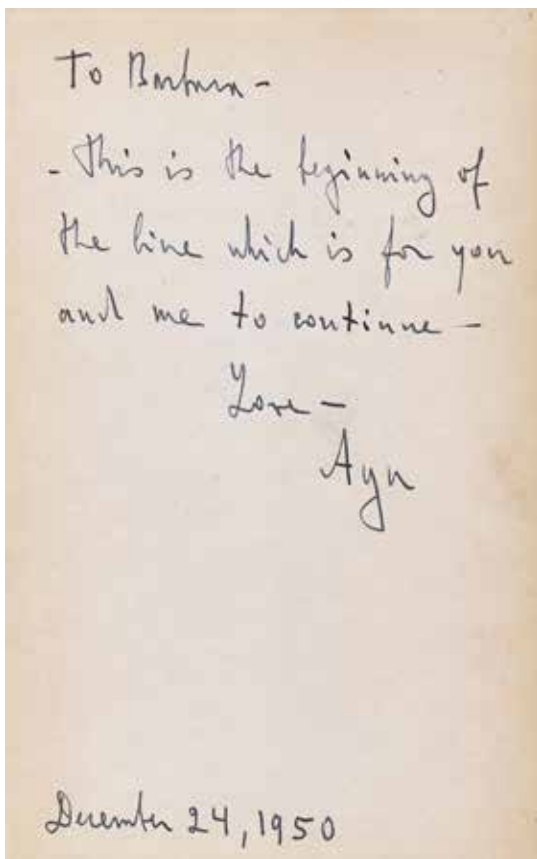 To Barbara -
- This is the beginning of
the line which is for you
and me to continue -
Love -
Ayn
December 24, 1950